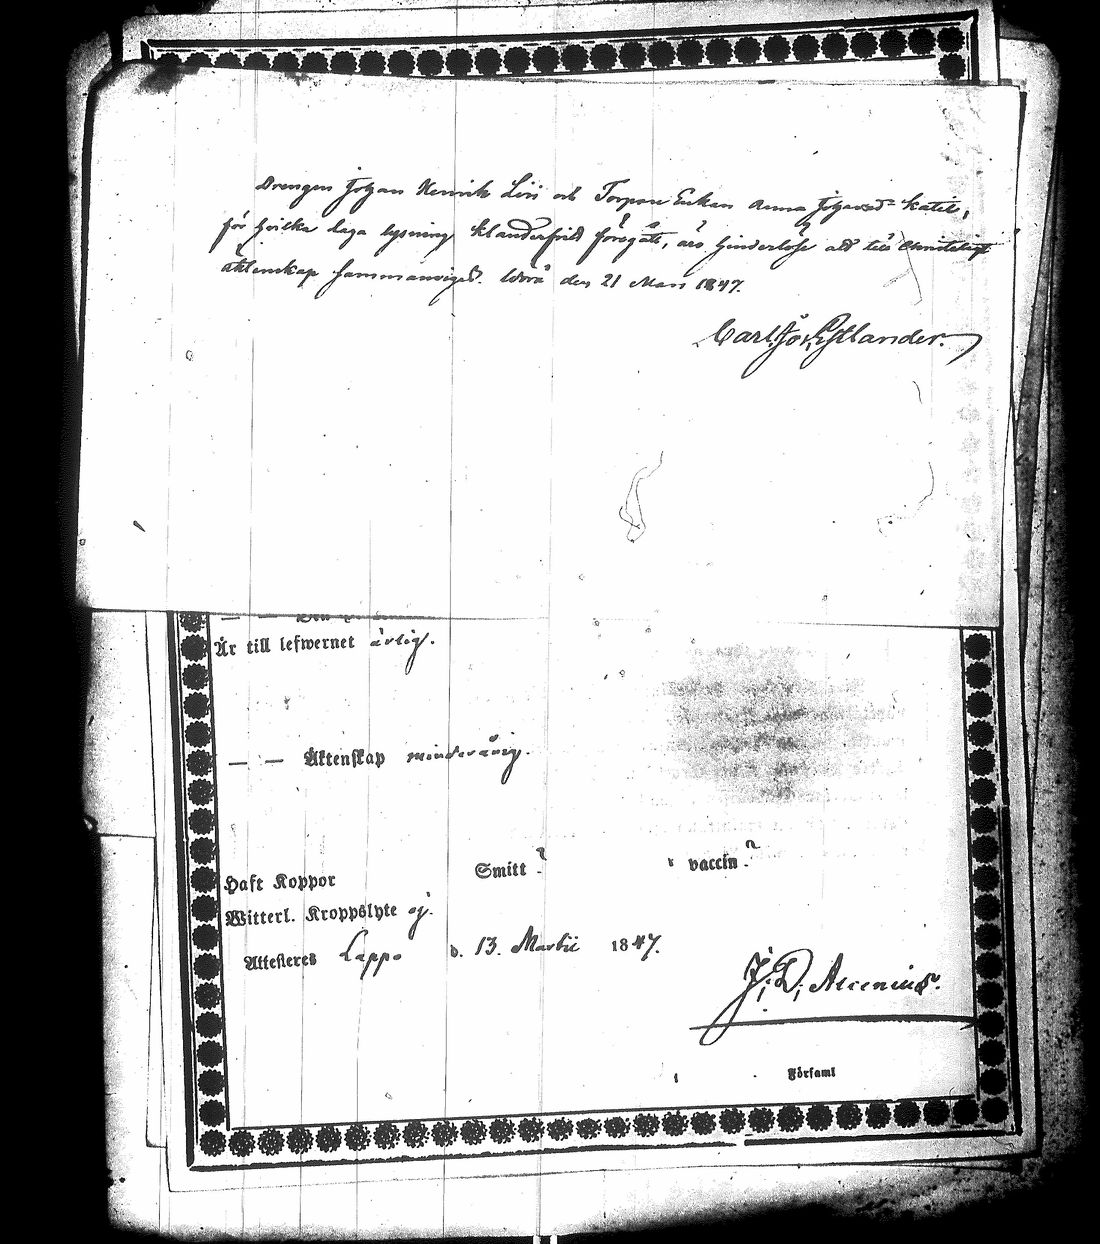 Drengen Johan Henrik Lisi och Torpare Enkan Anna Johansd. Katil,
för hvilka laga lysning klanderfritt föregått, äro hinderlöse att till Christeligt
äktenskap sammanvigas. Wörå den 21 Mars 1847.
Carl Joh. Estlander.
Är till lefwernet ärlig.
— — Äktenskap minderårig.
Haft Koppor Smitt vaccin
Witterl. Kroppslyte ej.
Attesteres Lappo d. 13. Martii 1847.
J. D. Alcenius.
Församl